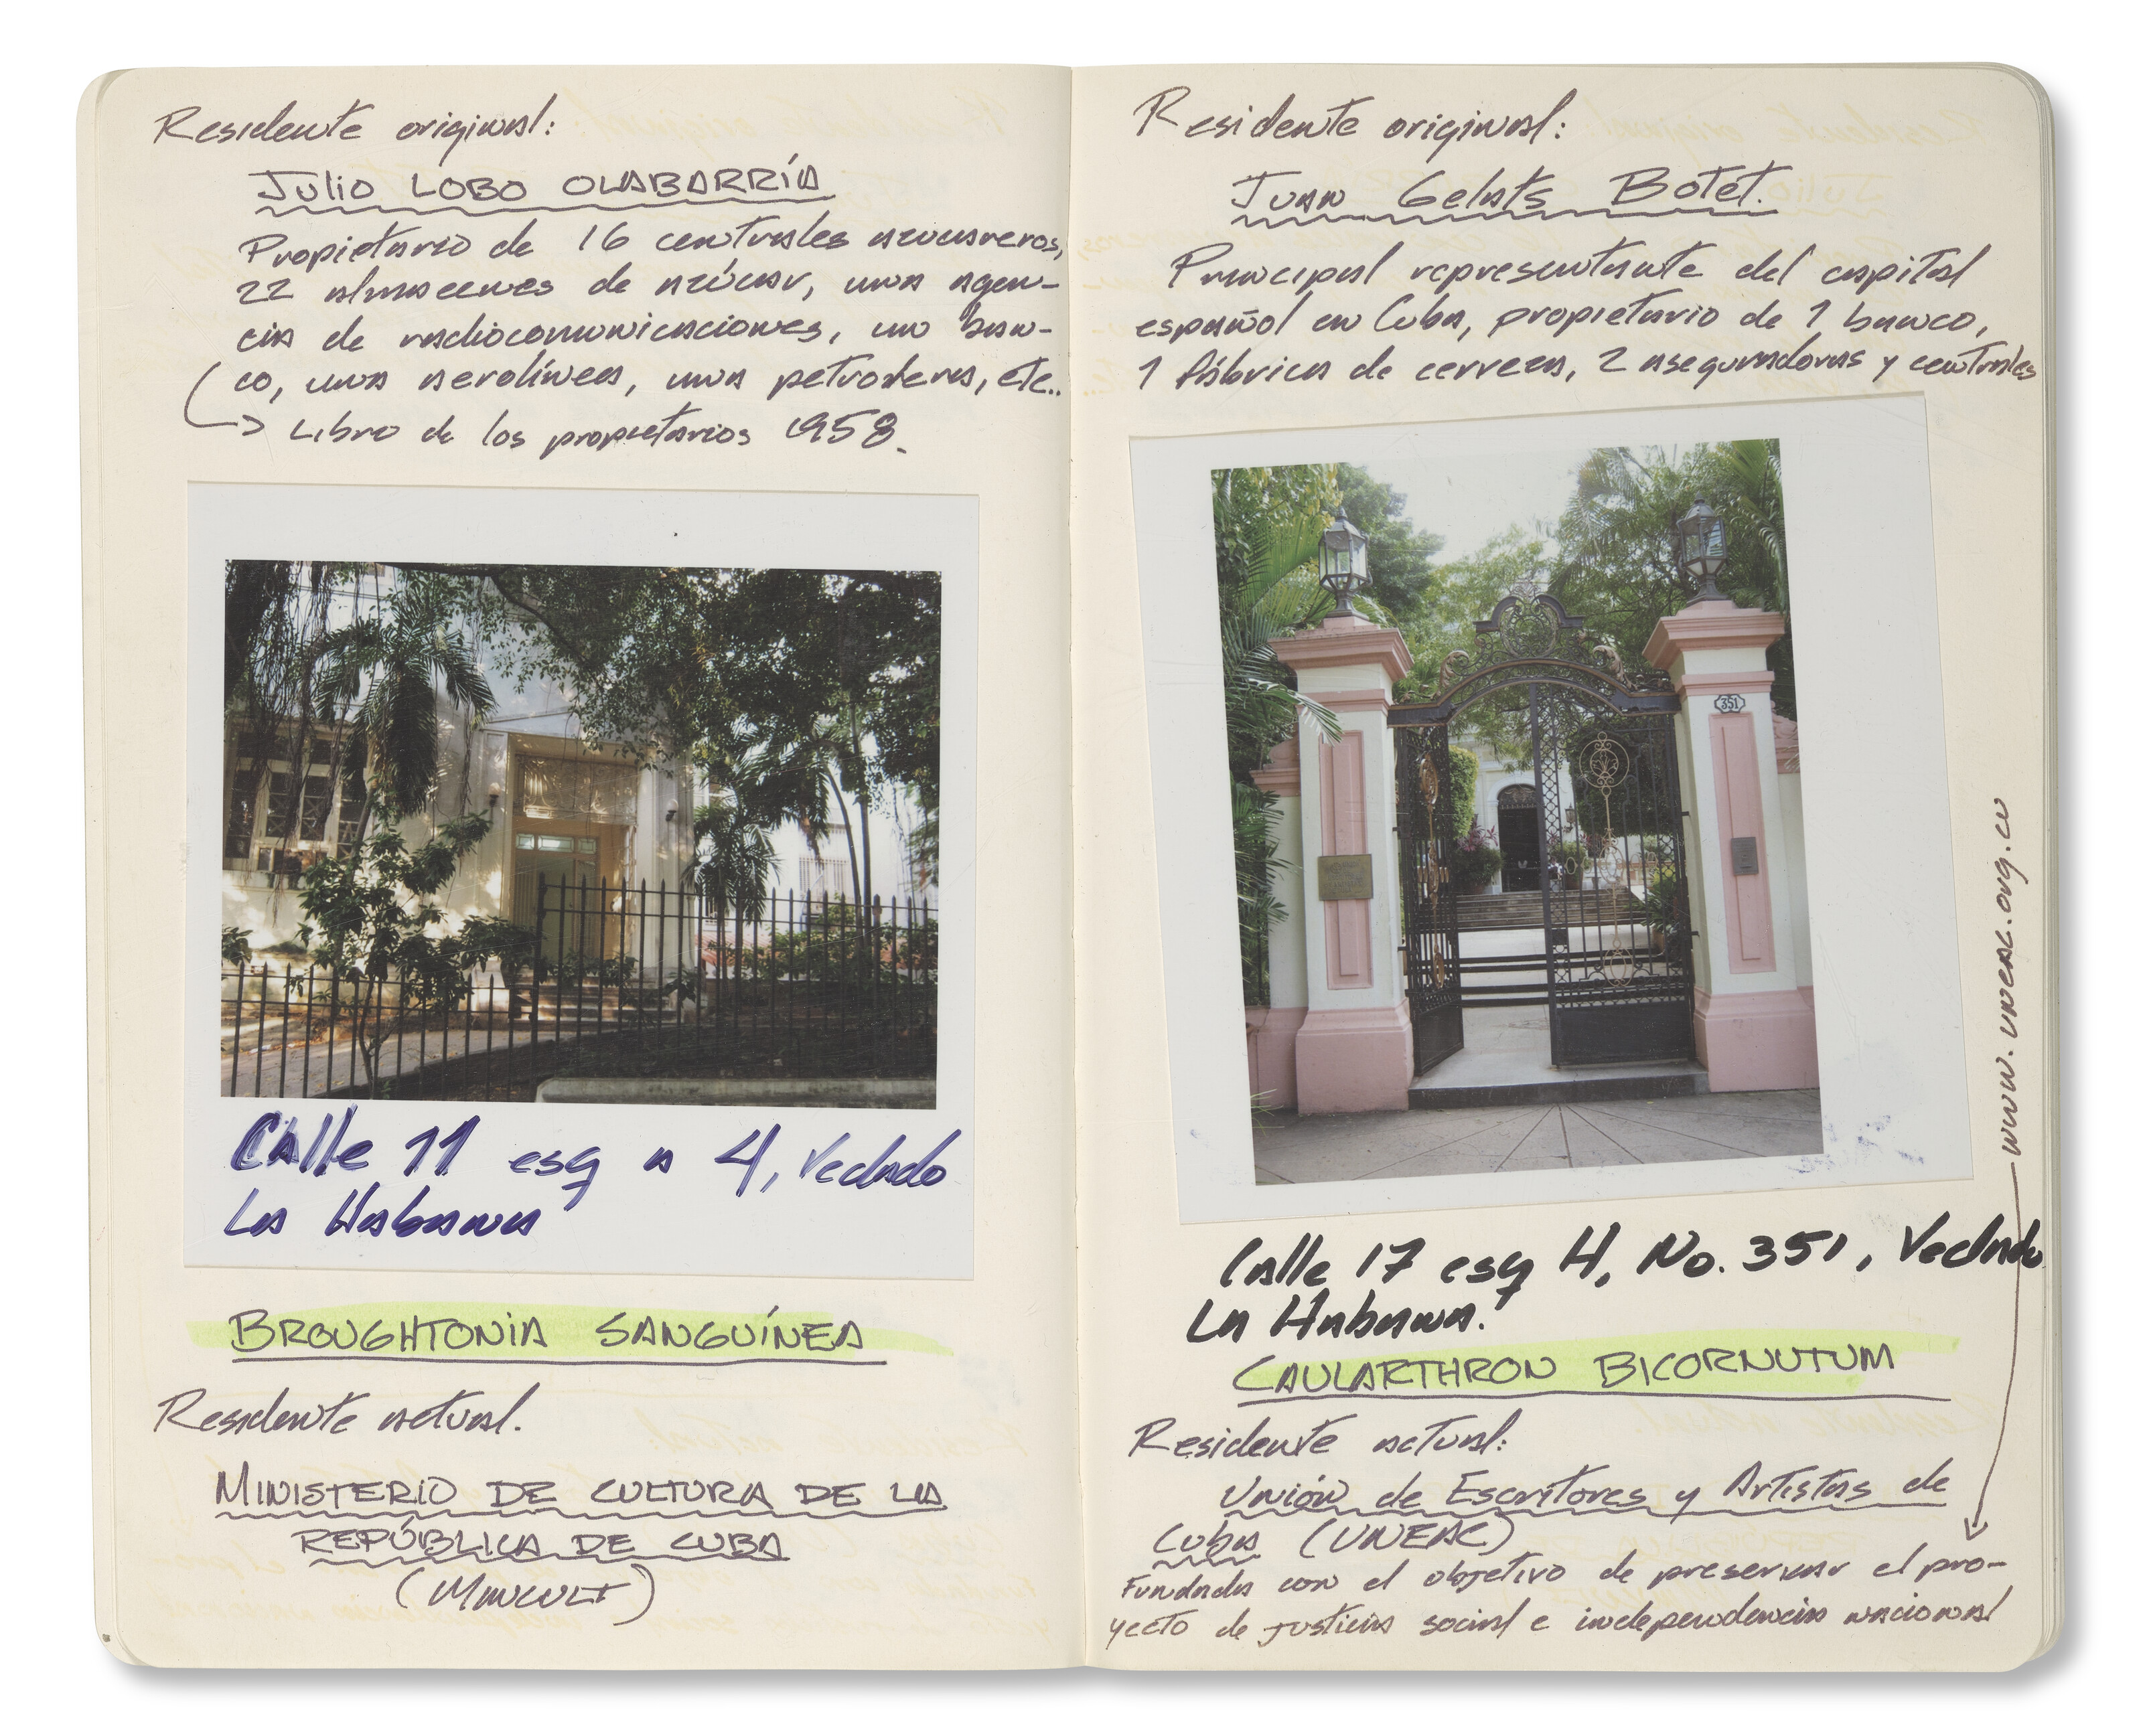 Residente original:
Julio LOBO OLABARRÍA
Propietario de 16 centrales azucareros,
22 almacenes de azúcar, una agen-
cia de radiocomunicaciones, un ban-
co, una aerolínea, una petrolera, etc..
Libro de los propietarios 1958.
Calle 11 esq a 4, Vedado
La Habana
BROUGHTONIA SANGUÍNEA
Residente actual.
MINISTERIO DE CULTURA DE LA
REPÚBLICA DE CUBA
(MINCULT)
Residente original:
Juan Gelats Botet.
Principal representante del capital
español en Cuba, propietario de 1 banco,
1 fábrica de cerveza, 2 aseguradoras y centrales
351
www.uneac.org.cu
Calle 17 esq H, No. 351, Vedado
La Habana.
CAULARTHRON BICORNUTUM
Residente actual:
Unión de Escritores y Artistas de
Cuba (UNEAC)
Fundada con el objetivo de preservar el pro-
yecto de justicia social e independencia nacional